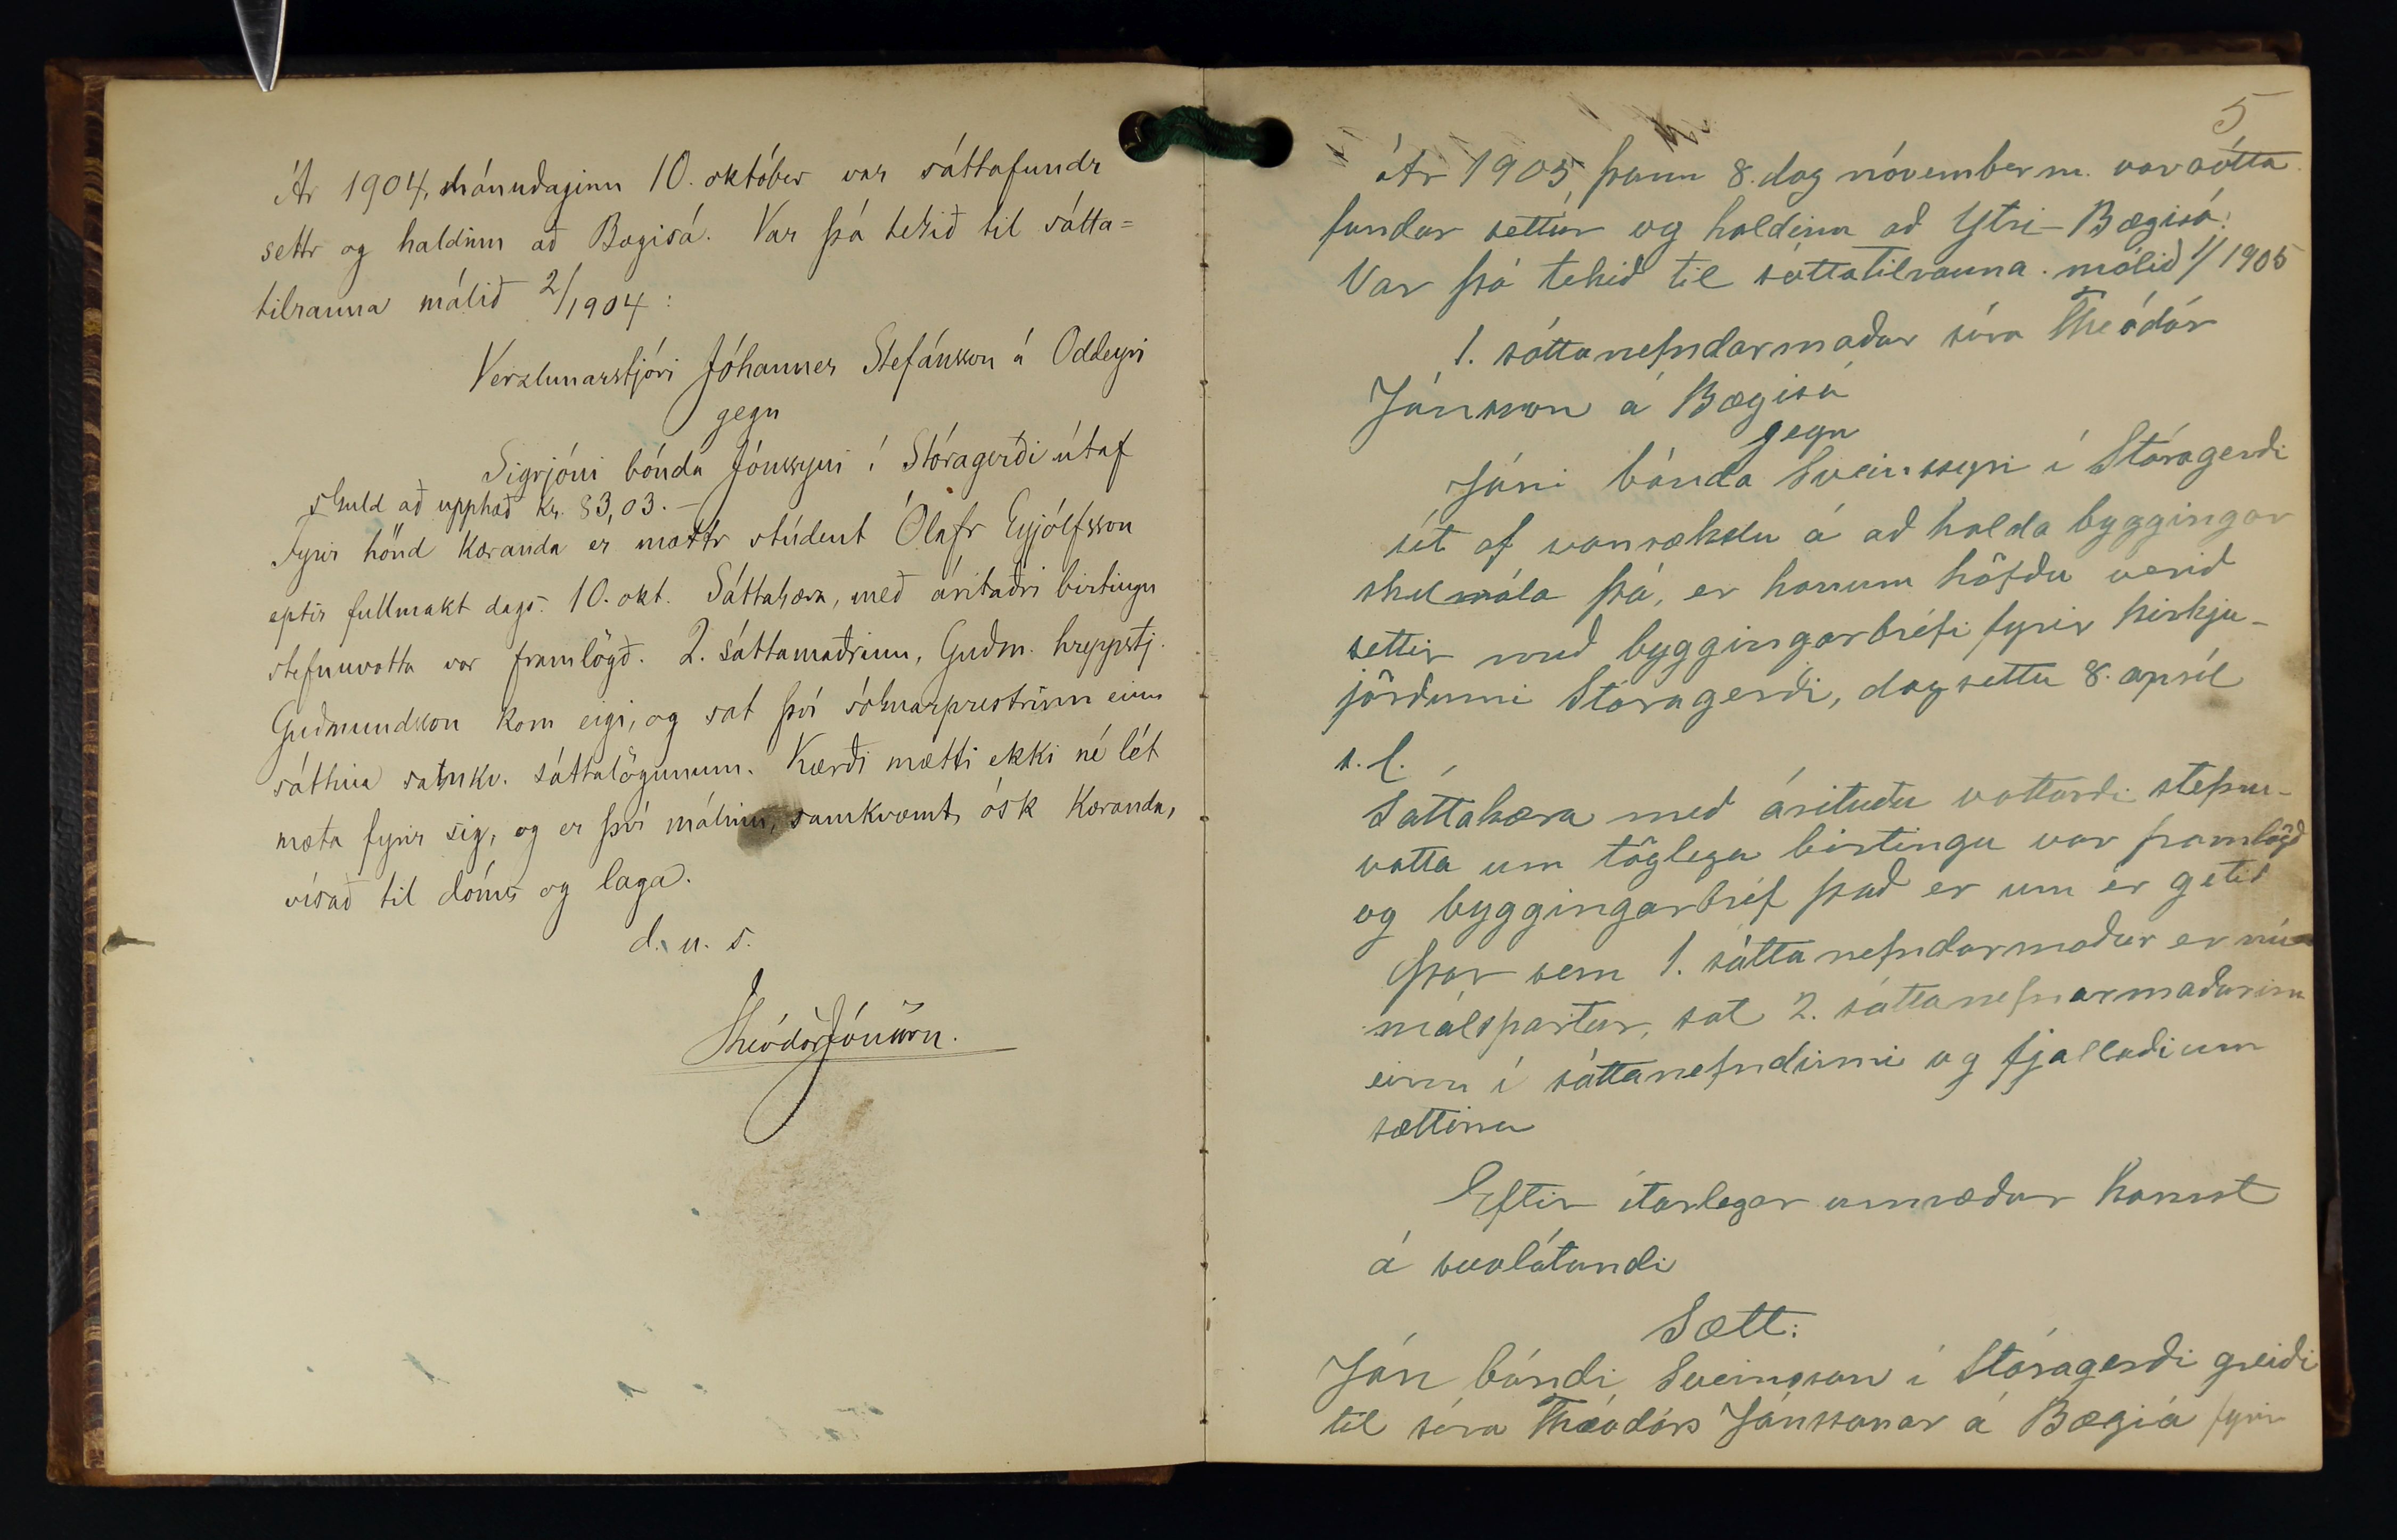 Ár 1904, mánudaginn 10. október var sáttafundr
settr og haldinn að Bægisá. Var þá tekið til sátta=
tilrauna málið 2/1904:
Verzlunarstjóri Jóhannes Stefánsson á Oddeyri
gegn
Sigrjóni bónda Jónssyni í Stóragerði útaf
skuld að upphæð kr. 83,03. —
Fyrir hönd kæranda er mættr stúdent Ólafr Eyjólfsson
eptir fullmakt dags. 10. okt. Sáttakæra, með áritaðri birtingu
stefnuvotta var framlögð. 2. sáttamaðrinn, Guðm. hreppstj.
Guðmundsson kom eigi, og sat því sóknarprestrinn einn
sáttina samkv. sáttalögunum. Kærði mætti ekki né lét
mæta fyrir sig, og er því málinu, samkvæmt ósk kæranda,
vísað til dóms og laga.
d. u. s.
Theódór Jónsson.
5
Ár 1905, þann 8. dag nóvember m. var sátta
fundur settur og haldinn að Ytri-Bægisá.
Var þá tekið til sáttatilrauna málið 1/1905
1. sáttanefndarmaður séra Theódór
Jónsson á Bægisá
gegn
Jóni bónda Sveinssyni í Stóragerði
út af vanrækslu á að halda byggingar
skilmála þá, er honum höfðu verið
settir með byggingarbréfi fyrir kirkju-
jörðunni Stóragerði, dagsettu 8. apríl
s. l.
Sáttakæra með árituðu vottorði stefnu-
votta um löglega birtingu var framlögð
og byggingarbréf það er um er getið
Þar sem 1. sáttanefndarmaður er nú
málspartur, sat 2. sáttanefnarmaðurinn
einn í sáttanefndinni og fjallaði um
sættina
Eftir ítarlegar umræður komst
á svolátandi
Sætt:
Jón bóndi Sveinsson í Stóragerði greiði
til séra Theódórs Jónssonar á Bægiá fyrir